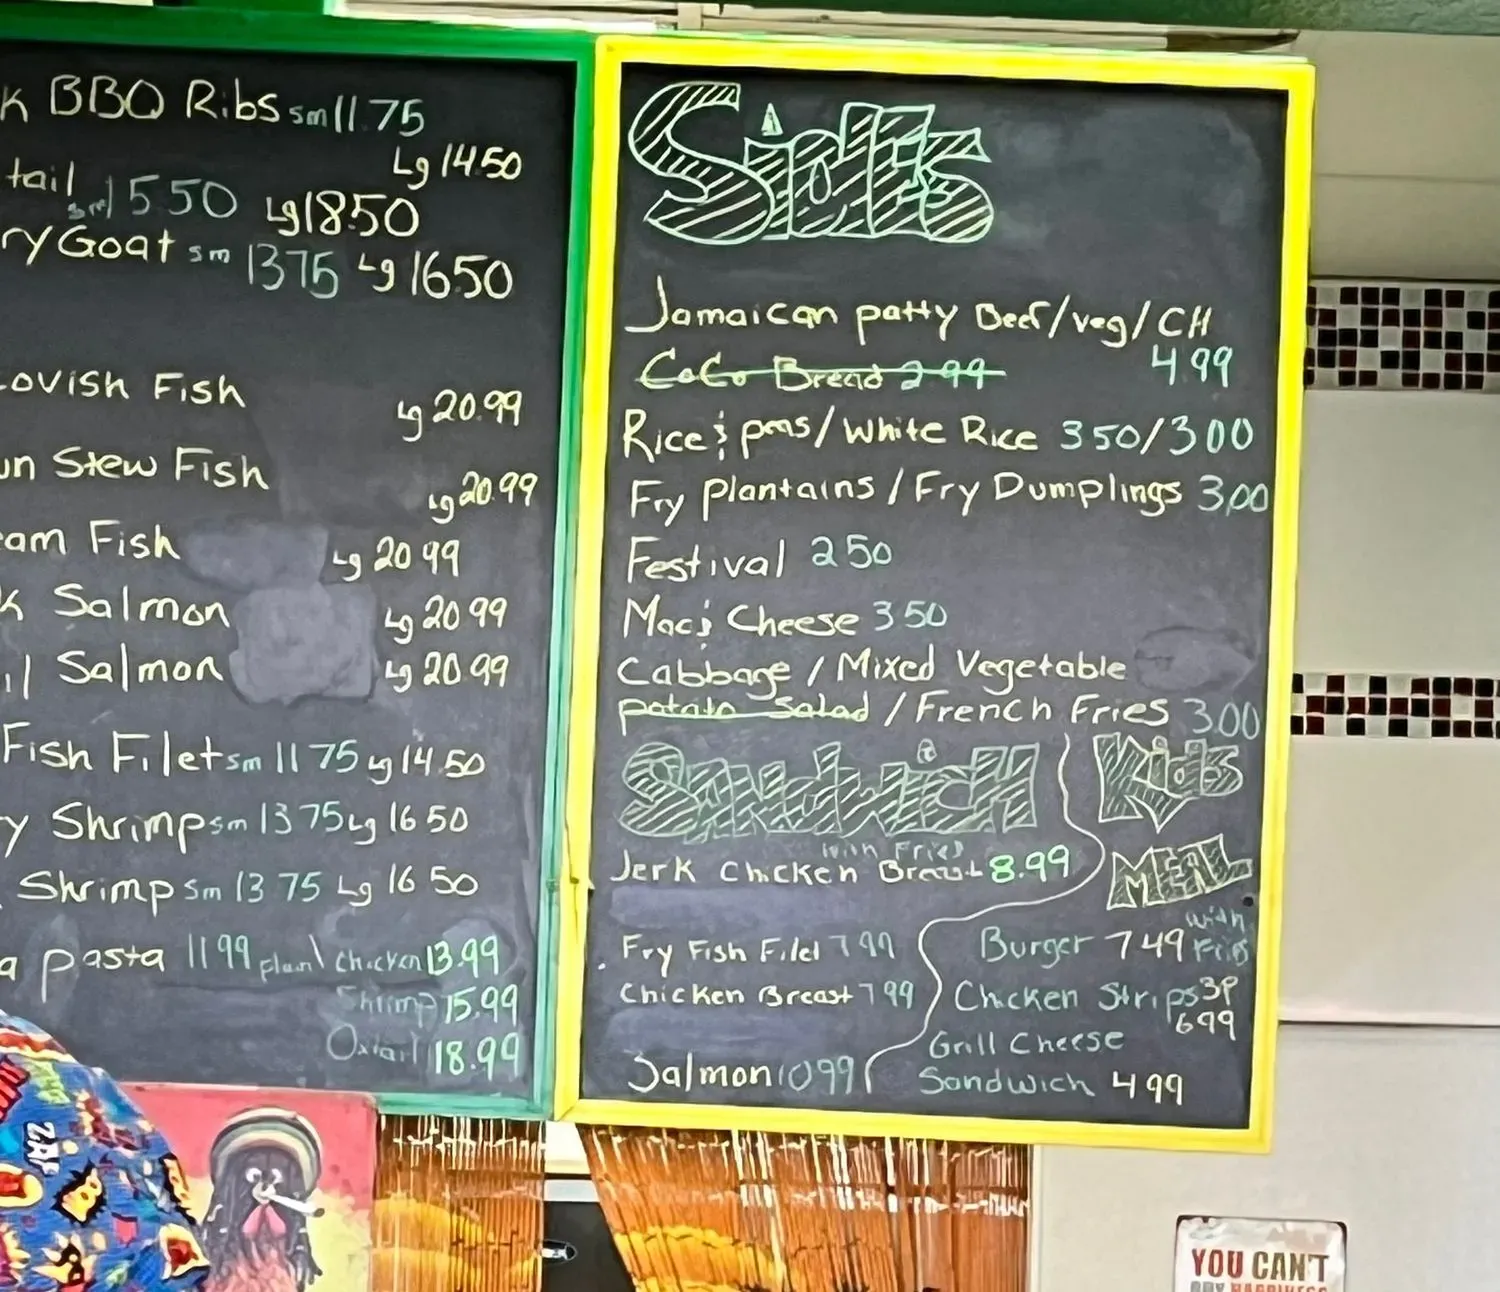 k BBQ Ribs sm 11.75
Lg 14.50
tail sm 15 50 Lg 18.50
ry Goat sm 13 75 Lg 16.50
ovish Fish Lg 20.99
un Stew Fish Lg 20.99
am Fish Lg 20 99
k Salmon Lg 20 99
il Salmon Lg 20.99
Fish Filet sm 11 75 Lg 14.50
y Shrimp sm 13 75 Lg 16 50
Shrimp sm 13 75 Lg 16 50
a pasta 11 99 plain \ Chicken 13.99
Shrimp 15.99
Oxtail 18.99
Sides
Jamaican patty Beef/veg/CH
CoCo Bread 2 99 4.99
Rice & peas/White Rice 3 50/3.00
Fry plantains / Fry Dumplings 3.00
Festival 2 50
Mac & Cheese 3 50
Cabbage / Mixed Vegetable
potato Salad / French Fries 3.00
Sandwich
with Fries
Jerk Chicken Breast 8.99
Fry Fish Filet 7 99
Chicken Breast 7 99
Salmon 10 99
Kids
MEAL
with
Burger 7 49 Fries
Chicken Strips 3P
6 99
Grill Cheese
Sandwich 4 99
YOU CAN'T
BUY HAPPINESS
ZAP